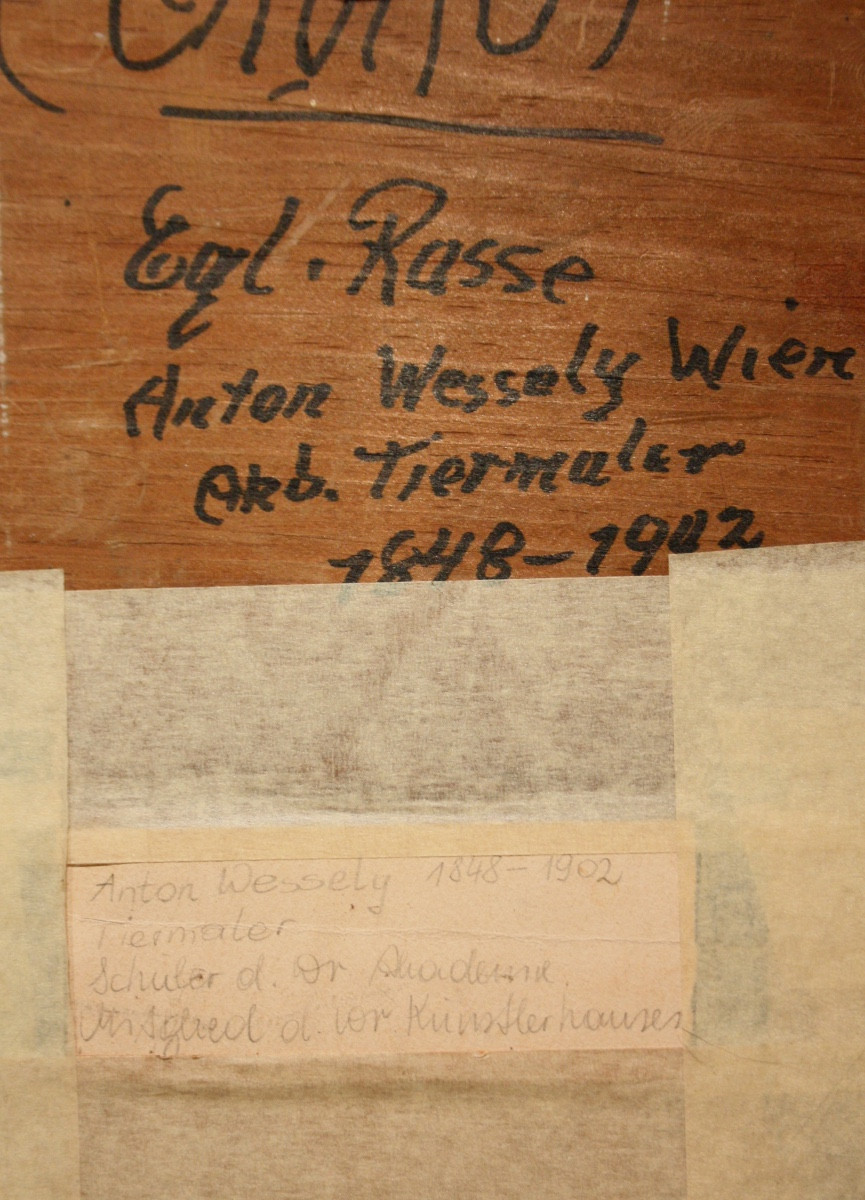 Egl. Rasse
Anton Wessely Wien
akb. Tiermaler
1848-1902
Anton Wessely 1848-1902
Tiermaler
Schüler d. Wr Akademie
Mitglied d. Wr. Künstlerhauses